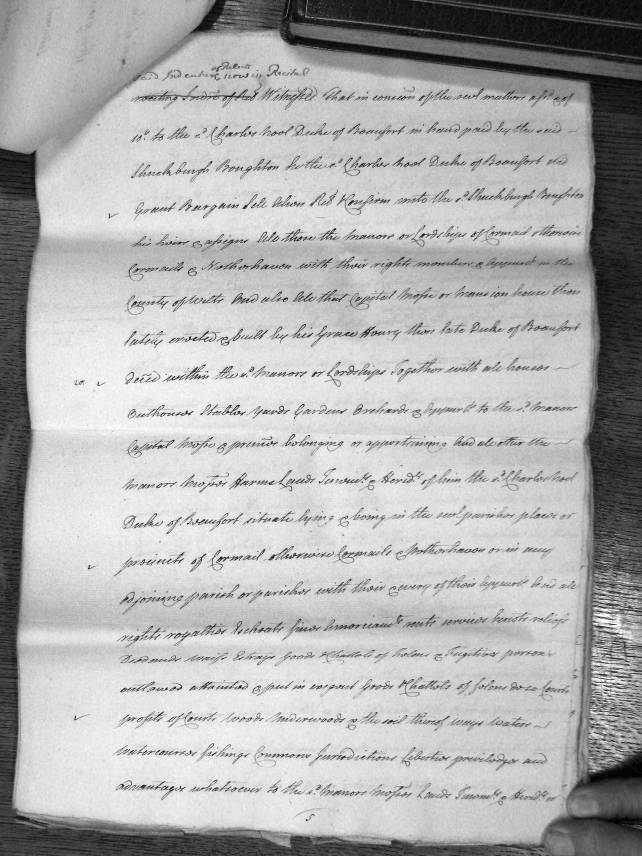 of Release
said Indenture now in Recital
reciting Indre of Rel Witnesseth That in consion of the sevl matters afsd & of
10s to the sd Charles Noel Duke of Beaufort in hand paid by the said
Shuckburgh Boughton he the sd Charles Noel Duke of Beaufort did
Grant Bargain Sell Alien Rel & Confirm unto the sd Shuckburgh Boughton
his heirs & assigns All those the Manors or Lordships of Cormail otherwise
Cormails & Netherhaven with their rights members & Appurts in the
County of Wilts And also All that Capital Messe or Mansion house then
lately erected & built by his Grace Henry then late Duke of Beaufort
decd within the sd Manors or Lordships Together with all houses
20 Outhouses Stables Yards Gardens Orchards & Appurts to the sd Manors
Capital Messe & premes belonging or appertaining And all other the
Manors Messes Farms Lands Tenemts & Heredts of him the sd Charles Noel
Duke of Beaufort situate lying & being in the sevl parishes places or
precincts of Cormail otherwise Cormails & Netherhaven or in any
adjoining parish or parishes with their & every of their Appurts And all
rights royalties Escheats fines Amerciamts rents services heriots reliefs
Deodands Waifs Estrays Goods & Chattels of felons & Fugitives persons
outlawed attainted & put in exigent Goods & Chattels of felons de se Courts
profits of Courts Woods Underwoods & the soil thereof ways waters
Watercourses fishings Commons Jurisdictions Liberties priviledges and
advantages whatsoever to the sd Manors Messes Lands Tenemts & Heredts or
5